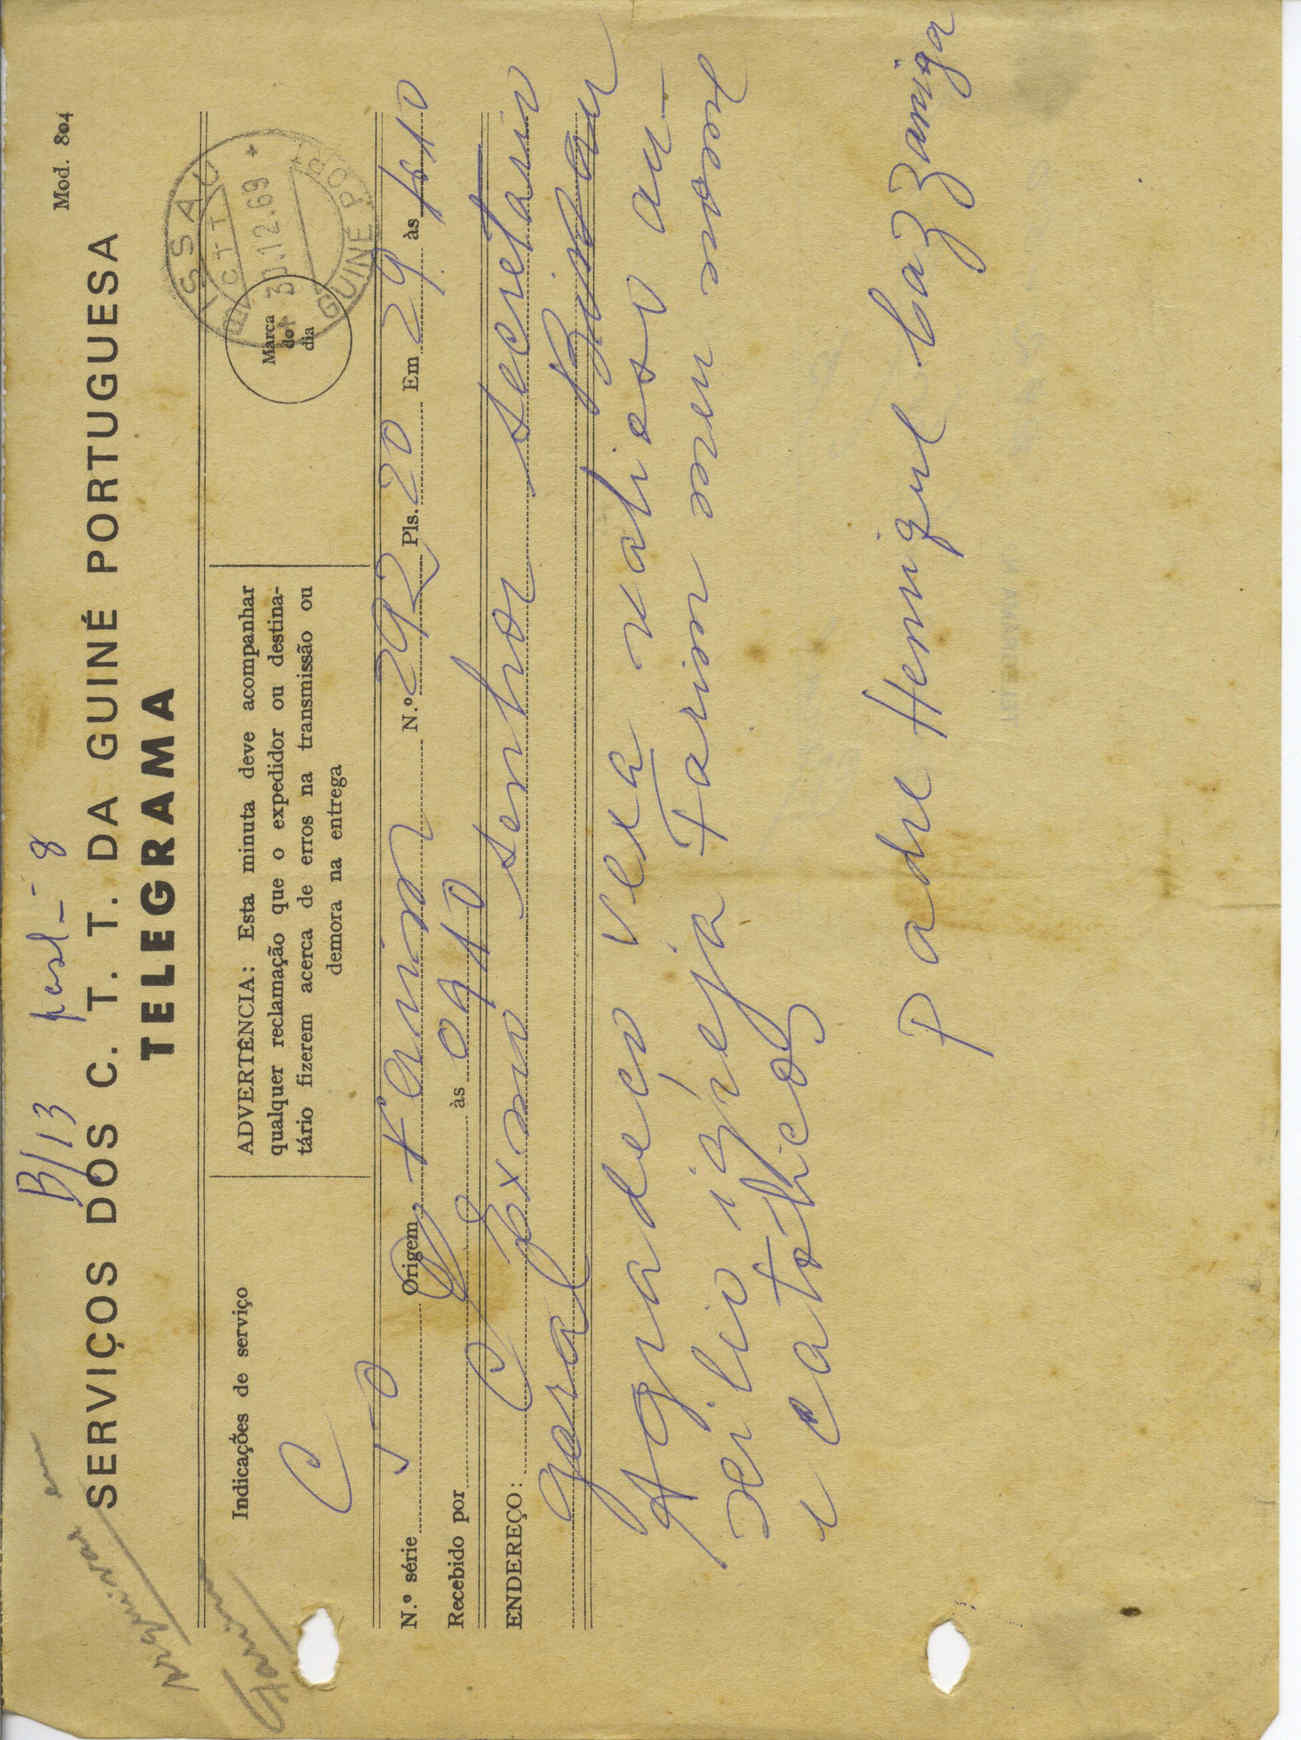 B/13 posl-8
Mod. 804
SERVIÇOS DOS C. T. T. DA GUINÉ PORTUGUESA
TELEGRAMA
arquivar em
Farim
Indicações de serviço
C
ADVERTÊNCIA: Esta minuta deve acompanhar
qualquer reclamação que o expedidor ou destina-
tário fizerem acerca de erros na transmissão ou
demora na entrega
Marca
do
dia
BISSAU
CTT
30.12.69
GUINÉ PORT
N.º série 50 Origem Farim N.º 292 Pls. 20 Em 29 às 1010
Recebido por às 0910
ENDEREÇO: Exmo senhor secretario
geral Bissau
Agradeco vexa valioso au-
xilio igreja Farim meu nome
i catolicos
Padre Henrique bazzaniga